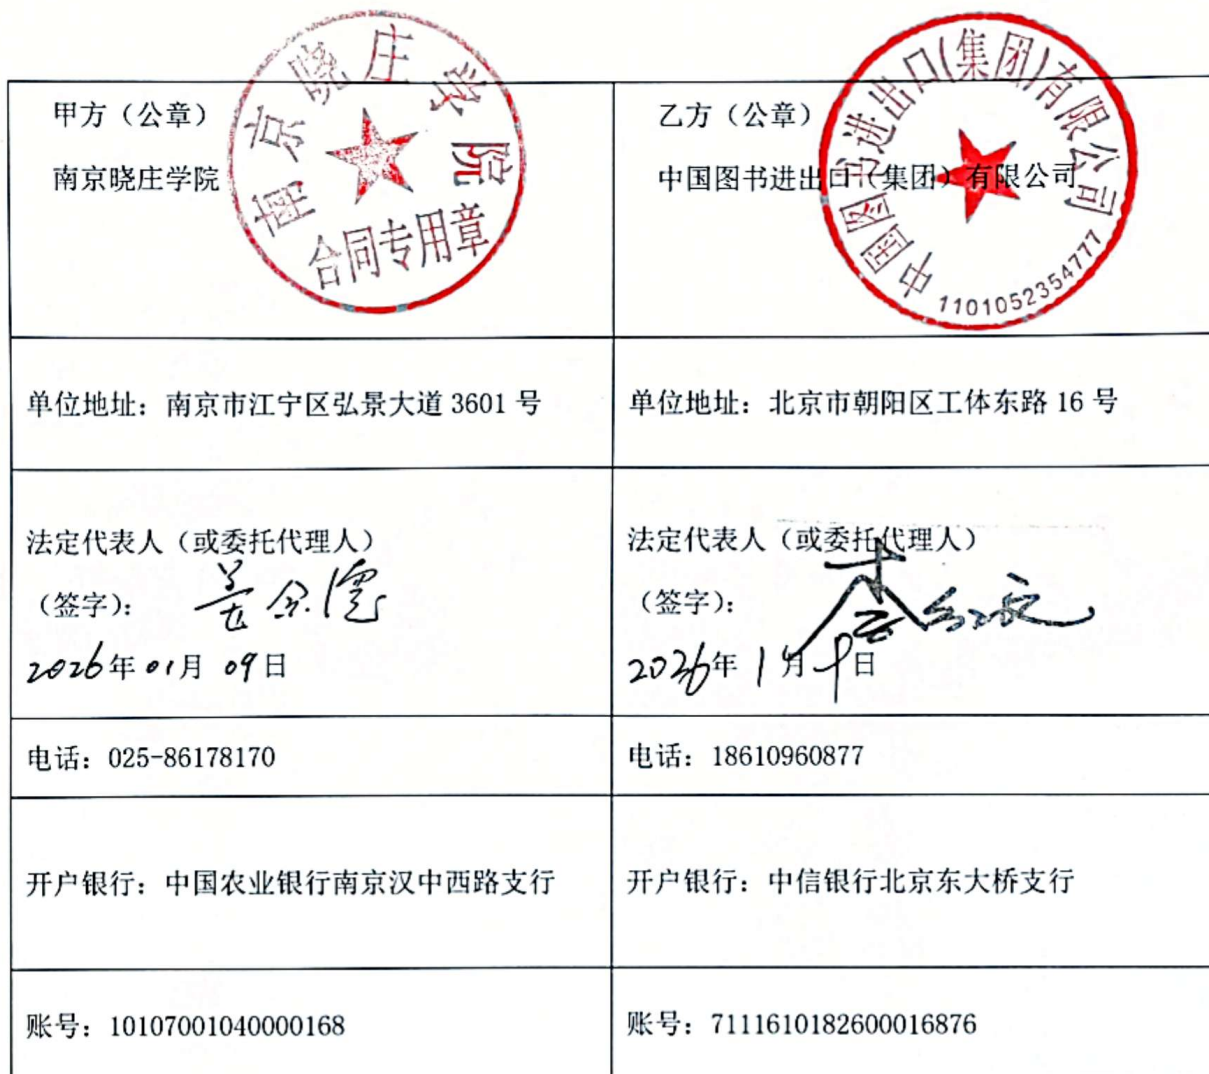 甲方（公章）
南京晓庄学院
南京晓庄学院
合同专用章
乙方（公章）
中国图书进出口（集团）有限公司
中国图书进出口(集团)有限公司
1101052354777
单位地址：南京市江宁区弘景大道 3601 号
单位地址：北京市朝阳区工体东路 16 号
法定代表人（或委托代理人）
（签字）：
2026年 01月 09日
法定代表人（或委托代理人）
（签字）：
2026年 1月 9日
电话：025-86178170
电话：18610960877
开户银行：中国农业银行南京汉中西路支行
开户银行：中信银行北京东大桥支行
账号：10107001040000168
账号：7111610182600016876